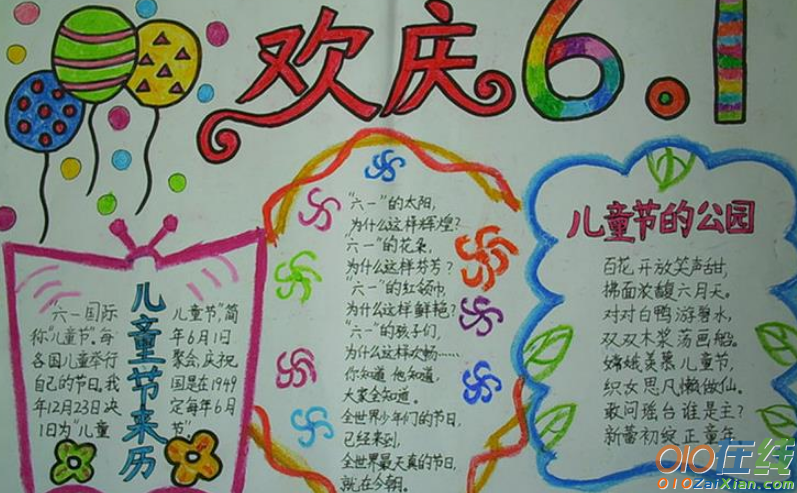 欢庆6.1
儿童节来历
"六一国际儿童节",简
你"儿童节".每年6月1日
各国儿童举行聚会,庆祝
自己的节日.我国是在1949
年12月23日决定每年6月
1日为"儿童节".
"六一"的太阳,
为什么这样辉煌?
"六一"的花朵,
为什么这样芬芳?
"六一"的红领巾
为什么这样鲜艳?
"六一"的孩子们,
为什么这样欢畅……
你知道 他知道,
大家全知道。
全世界少年们的节日,
已经来到,
全世界最天真的节日,
就在今朝。
儿童节的公园
百花开放笑声甜,
拂面浓馥六月天。
对对白鸭游碧水,
双双木浆荡画船。
嫦娥羡慕儿童节,
织女思凡懒做仙。
敢问瑶台谁是主?
新蕾初绽正童年
010在线
010ZaiXian.com